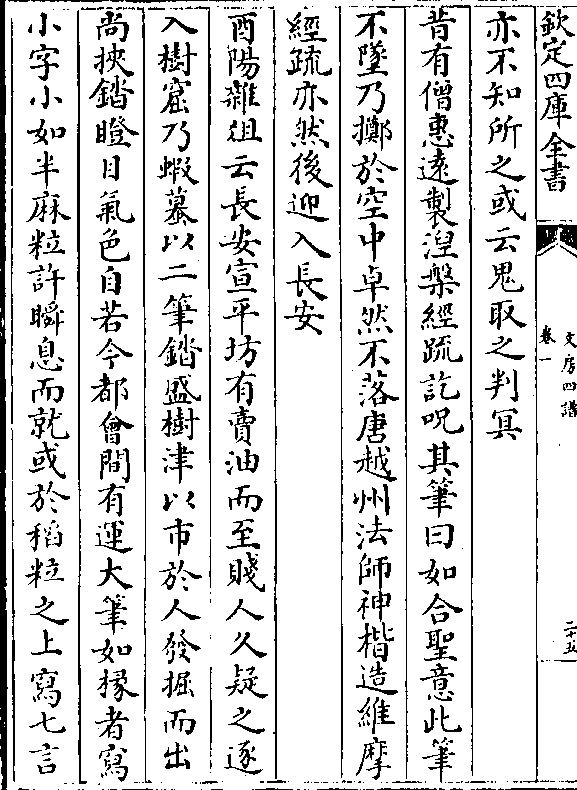 欽定四庫全書
文房四譜
卷一
二十五
亦不知所之或云鬼取之判冥
昔有僧惠遠製涅槃經疏訖呪其筆曰如合聖意此筆
不墜乃擲於空中卓然不落唐越州法師神楷造維摩
經疏亦然後迎入長安
酉陽雜俎云長安宣平坊有賣油而至賤人久疑之逐
入樹窟乃蝦蟇以二筆錔盛樹津以市於人發掘而出
尚挾錔瞪目氣色自若今都會間有運大筆如椽者寫
小字小如半麻粒許瞬息而就或於稻粒之上寫七言